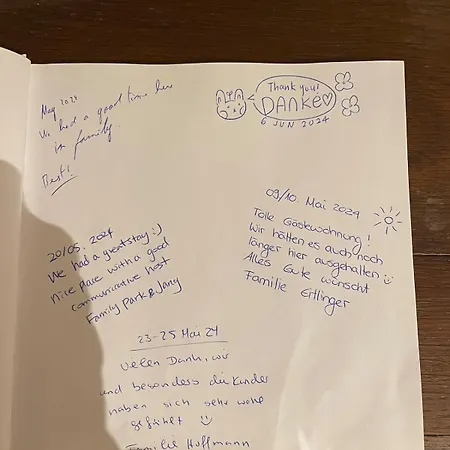 May 2024
We had a good time here
in family.
Best!
Thank you!
DANKE
6 JUN 2024
09/10. Mai 2024
Tolle Gästewohnung!
Wir hätten es auch noch
länger hier ausgehalten
Alles Gute wünscht
Familie Ertlinger
20/05. 2024
We had a great stay :)
nice place with a good
communicative host
Family Park & Jany
23-25 Mai 24
Vielen Dank, wir
und besonders die Kinder
haben sich sehr wohl
gefühlt
Familie Hoffmann